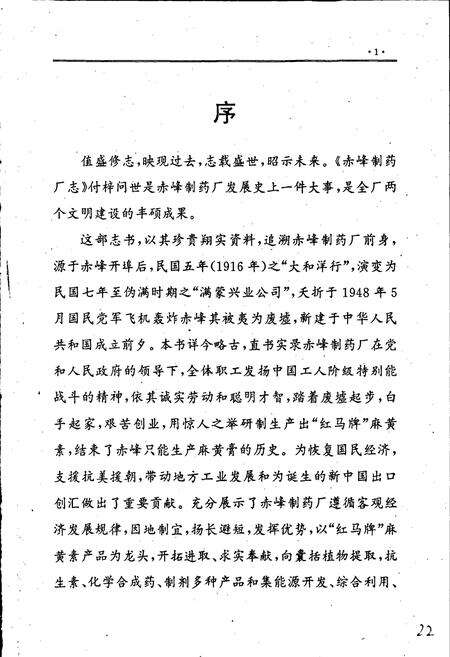 ·1·
序
值盛修志,映现过去,志载盛世,昭示未来。《赤峰制药
厂志》付梓问世是赤峰制药厂发展史上一件大事,是全厂两
个文明建设的丰硕成果。
这部志书,以其珍贵翔实资料,追溯赤峰制药厂前身,
源于赤峰开埠后,民国五年(1916年)之“大和洋行”,演变为
民国七年至伪满时期之“满蒙兴业公司”,夭折于1948年5
月国民党军飞机轰炸赤峰其被夷为废墟,新建于中华人民
共和国成立前夕。本书详今略古,直书实录赤峰制药厂在党
和人民政府的领导下,全体职工发扬中国工人阶级特别能
战斗的精神,依其诚实劳动和聪明才智,踏着废墟起步,白
手起家,艰苦创业,用惊人之举研制生产出“红马牌”麻黄
素,结束了赤峰只能生产麻黄膏的历史。为恢复国民经济,
支援抗美援朝,带动地方工业发展和为诞生的新中国出口
创汇做出了重要贡献。充分展示了赤峰制药厂遵循客观经
济发展规律,因地制宜,扬长避短,发挥优势,以“红马牌”麻
黄素产品为龙头,开拓进取、求实奉献,向囊括植物提取,抗
生素、化学合成药、制剂多种产品和集能源开发、综合利用、
22